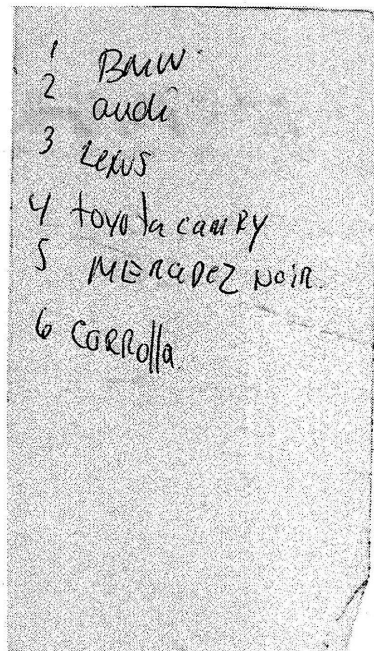 1 BMW.
2 audi
3 Lexus
4 toyota camRY
5 MERCDEZ NOIR.
6 CORRolla